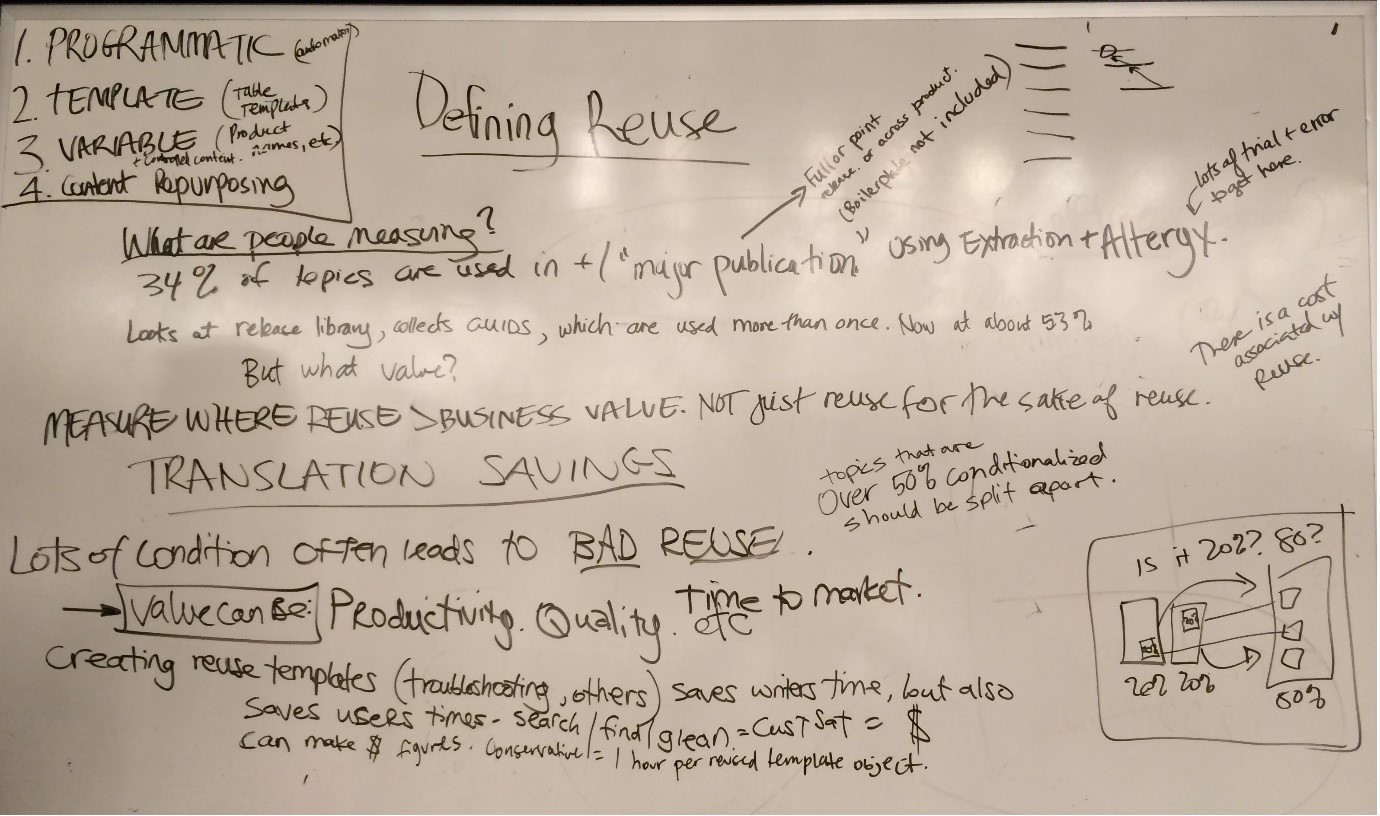 1. PROGRAMMATIC (automated)
2. TEMPLATE (Table Templates)
3. VARIABLE (Product names, etc)
+ controlled content.
4. Content Repurposing
Defining Reuse
Full or point
release. or across product.
(Boilerplate not included)
Lots of trial + error
to get here.
What are people measuring?
34% of topics are used in +1 "major publication" using Extraction + Alterqx.
Looks at release library, collects GUIDS, which are used more than once. Now at about 53%
But what value?
There is a cost
associated w/
Reuse.
MEASURE WHERE REUSE > BUSINESS VALUE. NOT just reuse for the sake of reuse.
TRANSLATION SAVINGS
topics that are
Over 50% conditionalized
should be split apart.
Lots of condition often leads to BAD REUSE.
→ Value can be: Productivity. Quality. Time to market.
etc
Creating reuse templates (troubleshooting, others) saves writers time, but also
Saves users times - search/find/glean = CustSat = $
Can make $ figures. Conservative = 1 hour per reused template object.
Is it 20%? 80?
20% 20%
20% 20%
80%